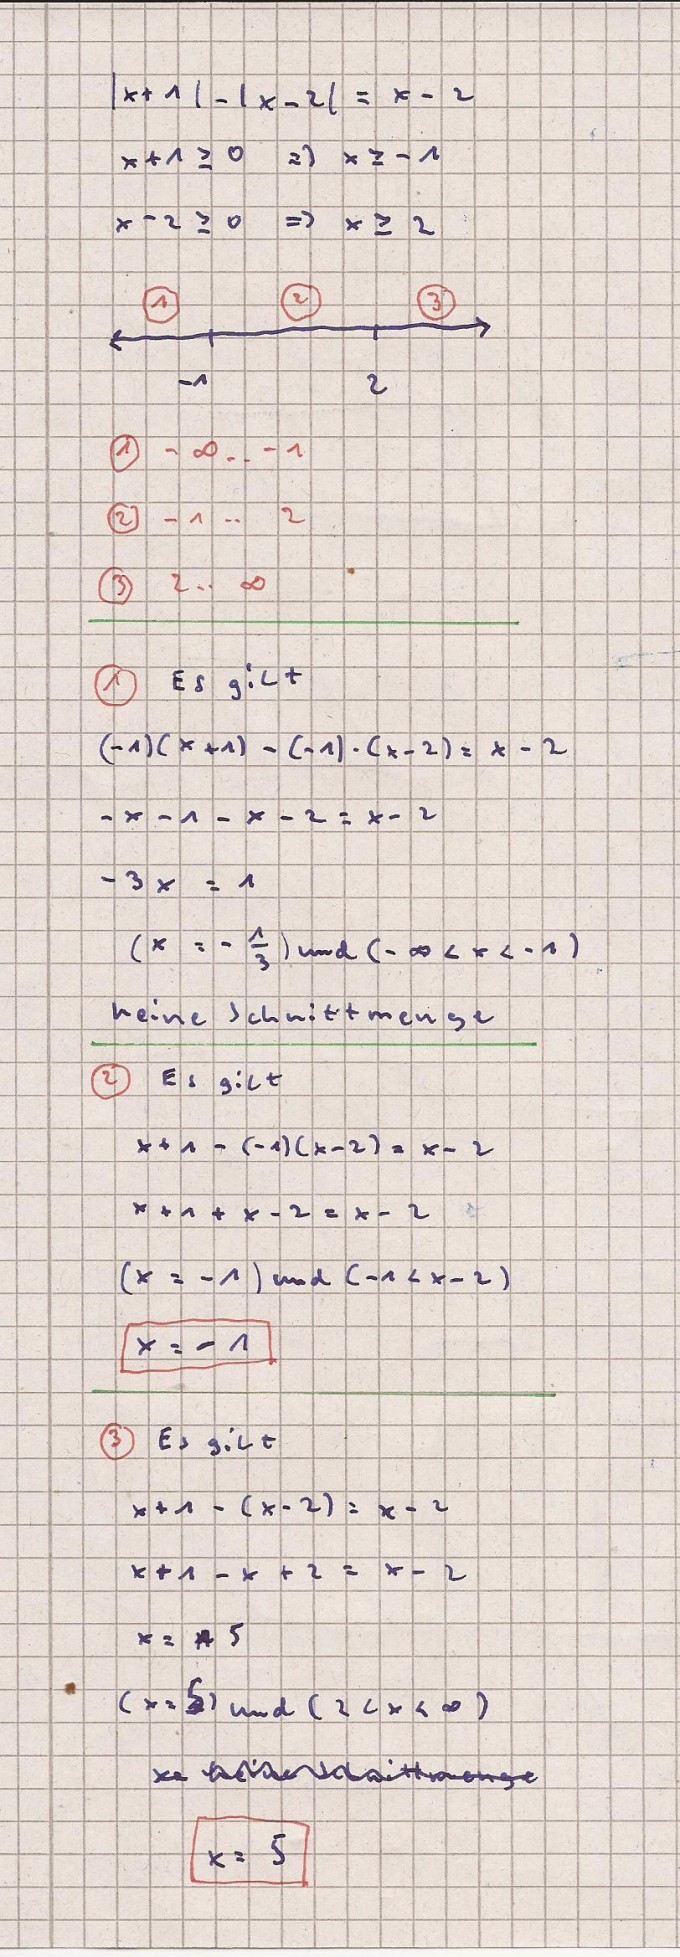 |x+1|-|x-2| = x-2
x+1≥0 => x≥-1
x-2≥0 => x≥2
① ② ③
-1 2
① -∞..-1
② -1.. 2
③ 2.. ∞
① Es gilt
(-1)(x+1) - (-1)·(x-2) = x-2
-x-1-x-2 = x-2
-3x = 1
(x = -1/3) und (-∞<x<-1)
keine Schnittmenge
② Es gilt
x+1 - (-1)(x-2) = x-2
x+1+x-2 = x-2
(x = -1) und (-1<x-2)
x = -1
③ Es gilt
x+1 - (x-2) = x-2
x+1-x+2 = x-2
x = 5
(x=5) und (2<x<∞)
x= keine Schnittmenge
x = 5